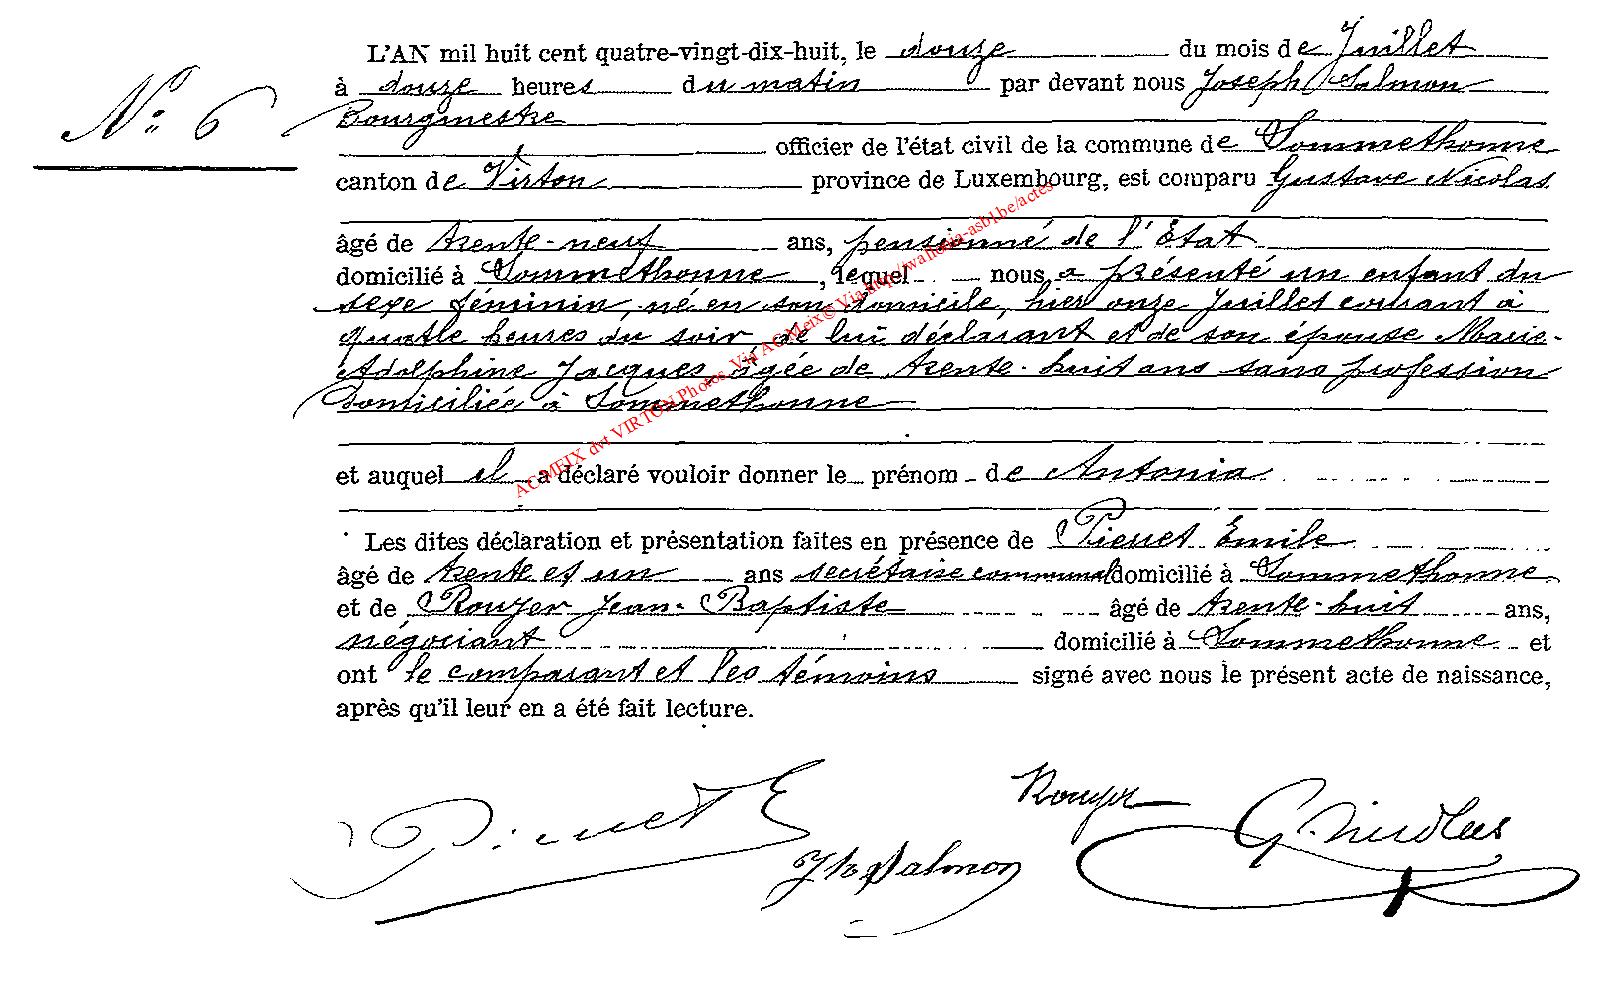 L'AN mil huit cent quatre-vingt-dix-huit, le douze du mois de Juillet
à douze heures du matin par devant nous Joseph Salmon
N° 6 Bourgmestre
officier de l'état civil de la commune de Sommethonne
canton de Virton province de Luxembourg, est comparu Gustave Nicolas
âgé de trente-neuf ans, pensionné de l'État
domicilié à Sommethonne, lequel nous a présenté un enfant du
sexe féminin, né en son domicile, hier onze Juillet courant à
quatre heures du soir, de lui déclarant et de son épouse Marie-
Adolphine Jacques, âgée de trente-huit ans sans profession
domiciliée à Sommethonne
et auquel il a déclaré vouloir donner le prénom de Antonia
Les dites déclaration et présentation faites en présence de Pierret Emile
âgé de trente et un ans secrétaire communal domicilié à Sommethonne
et de Rouyer Jean-Baptiste âgé de trente-huit ans,
négociant domicilié à Sommethonne et
ont le comparant et les témoins signé avec nous le présent acte de naissance,
après qu'il leur en a été fait lecture.
Pierret E Rouyer G. Nicolas
Jh Salmon
ACMEIX dvt VIRTON Photos Via ACMeix© Via http://wallonia-asbl.be/actes